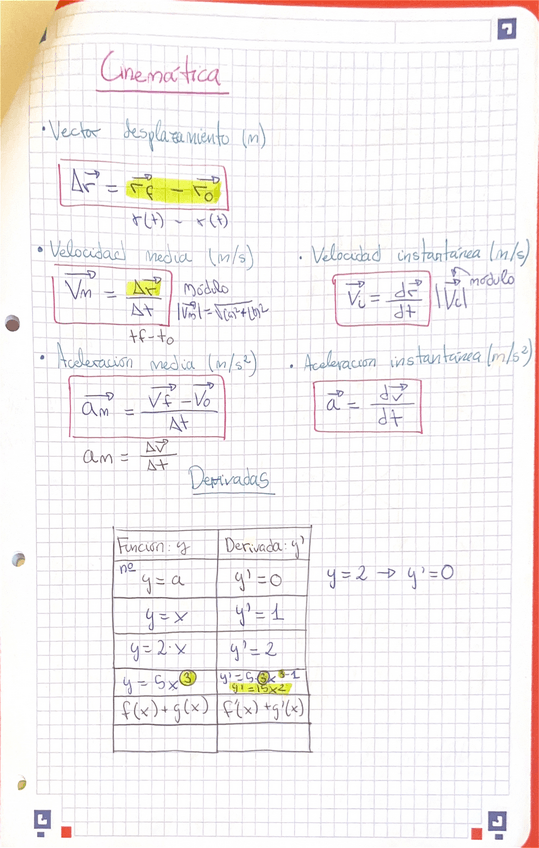 Cinemática
• Vector desplazamiento (m)
Δr⃗ = r⃗f − r⃗o
r(t) − r(t)
• Velocidad media (m/s)
V⃗m = Δr⃗/Δt
módulo
|V⃗m| = √(a)²+(b)²
tf−to
• Velocidad instantánea (m/s)
V⃗i = dr⃗/dt
|V⃗i| módulo
• Aceleración media (m/s²)
a⃗m = (V⃗f − V⃗o)/Δt
am = Δv⃗/Δt
• Aceleración instantánea (m/s²)
a⃗ = dv⃗/dt
Derivadas
Función: y Derivada: y'
nº
y = a y' = 0 y = 2 → y' = 0
y = x y' = 1
y = 2·x y' = 2
y = 5x³ y' = 5·3x³⁻¹
y' = 15x²
f(x)+g(x) f'(x)+g'(x)